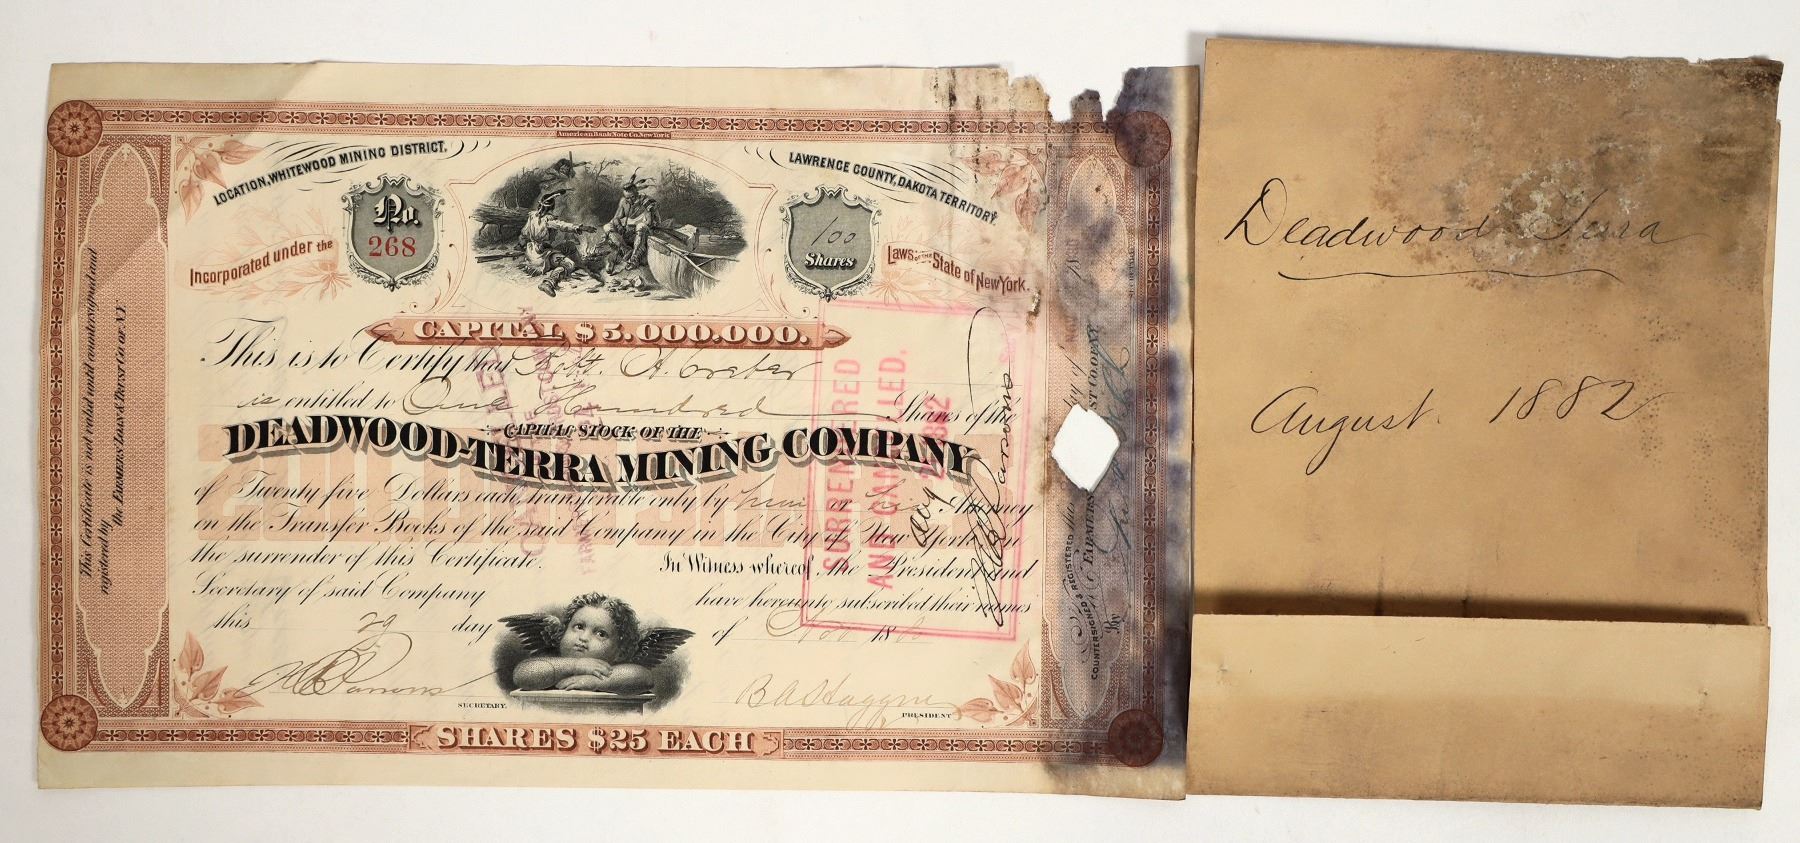 American Bank Note Co. New York
LOCATION, WHITEWOOD MINING DISTRICT,
LAWRENCE COUNTY, DAKOTA TERRITORY
No.
268
100
Shares
Incorporated under the
Laws OF THE State of New York.
CAPITAL $5.000.000.
This is to Certify that Robt. A.
is entitled to One Hundred Shares of the
CAPITAL STOCK OF THE
DEADWOOD-TERRA MINING COMPANY
of Twenty five Dollars each, transferable only by him or his Attorney
on the Transfer Books of the said Company in the City of New York on
the surrender of this Certificate. In Witness whereof, the President and
Secretary of said Company have hereunto subscribed their names
this 29 day of Nov 1880
H B Parsons
SECRETARY.
B A Haggin
PRESIDENT
SHARES $25 EACH
This Certificate is not valid until countersigned and
registered by the FARMERS LOAN & TRUST CO OF N.Y.
SURRENDERED
AND CANCELLED.
Aug 2 1882
H B Parsons
COUNTERSIGNED & REGISTERED this day of
By
Deadwood Terra
August. 1882